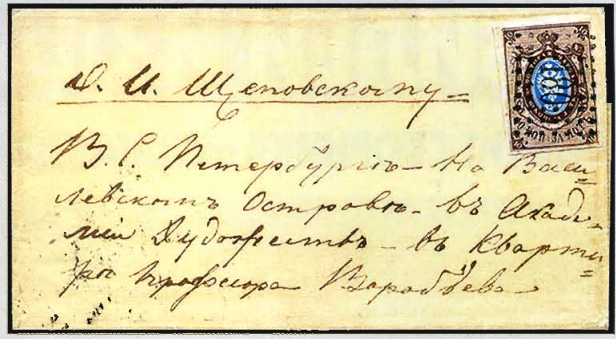 Д. И. Щеповскому
В. С. Петербургѣ – на Васи=
левскомъ Островѣ – въ Акаде=
мии Художествъ – въ Кварти=
рѣ Профессора Воробьева